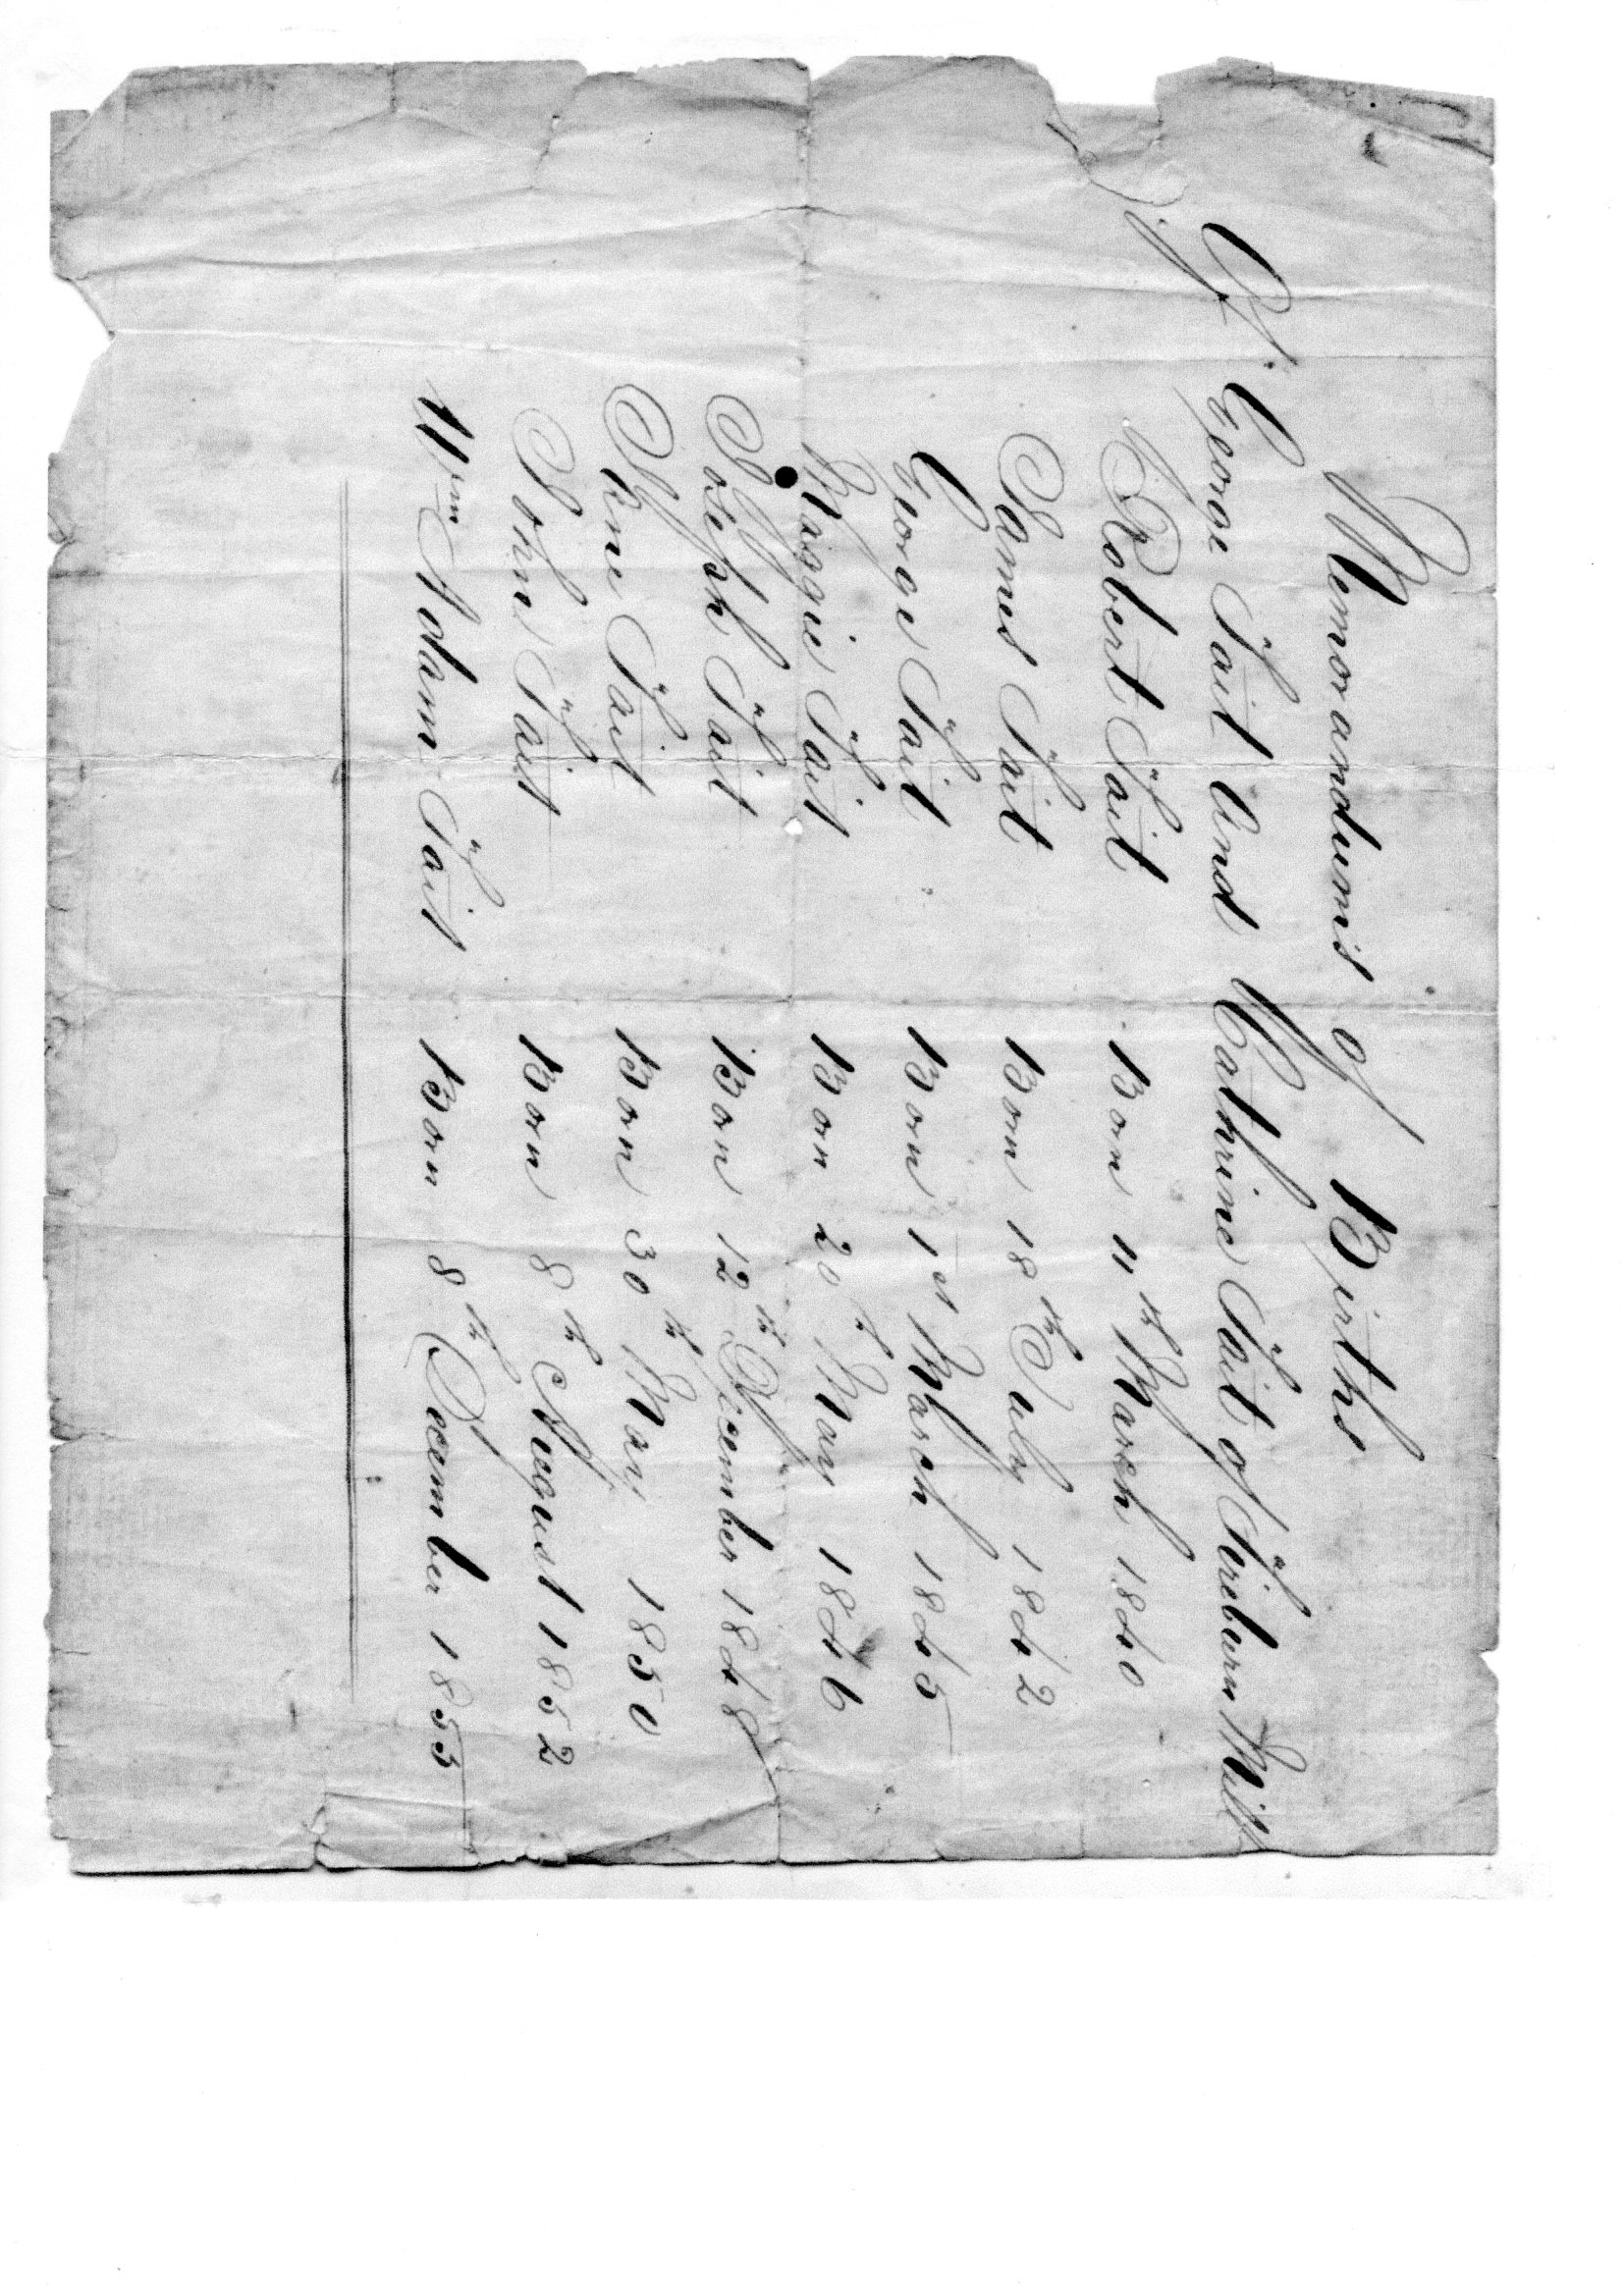 Memorandums of Births
Of George Tait And Cathrine Tait of Fireburn Mill
Robert Tait Born 11th March 1840
James Tait Born 18th July 1842
George Tait Born 1st March 1845
Maggie Tait Born 20th May 1846
Joseph Tait Born 12th December 1848
Tait Born 30th May 1850
John Tait Born 8th August 1852
Wm Adam Tait Born 8th December 1855